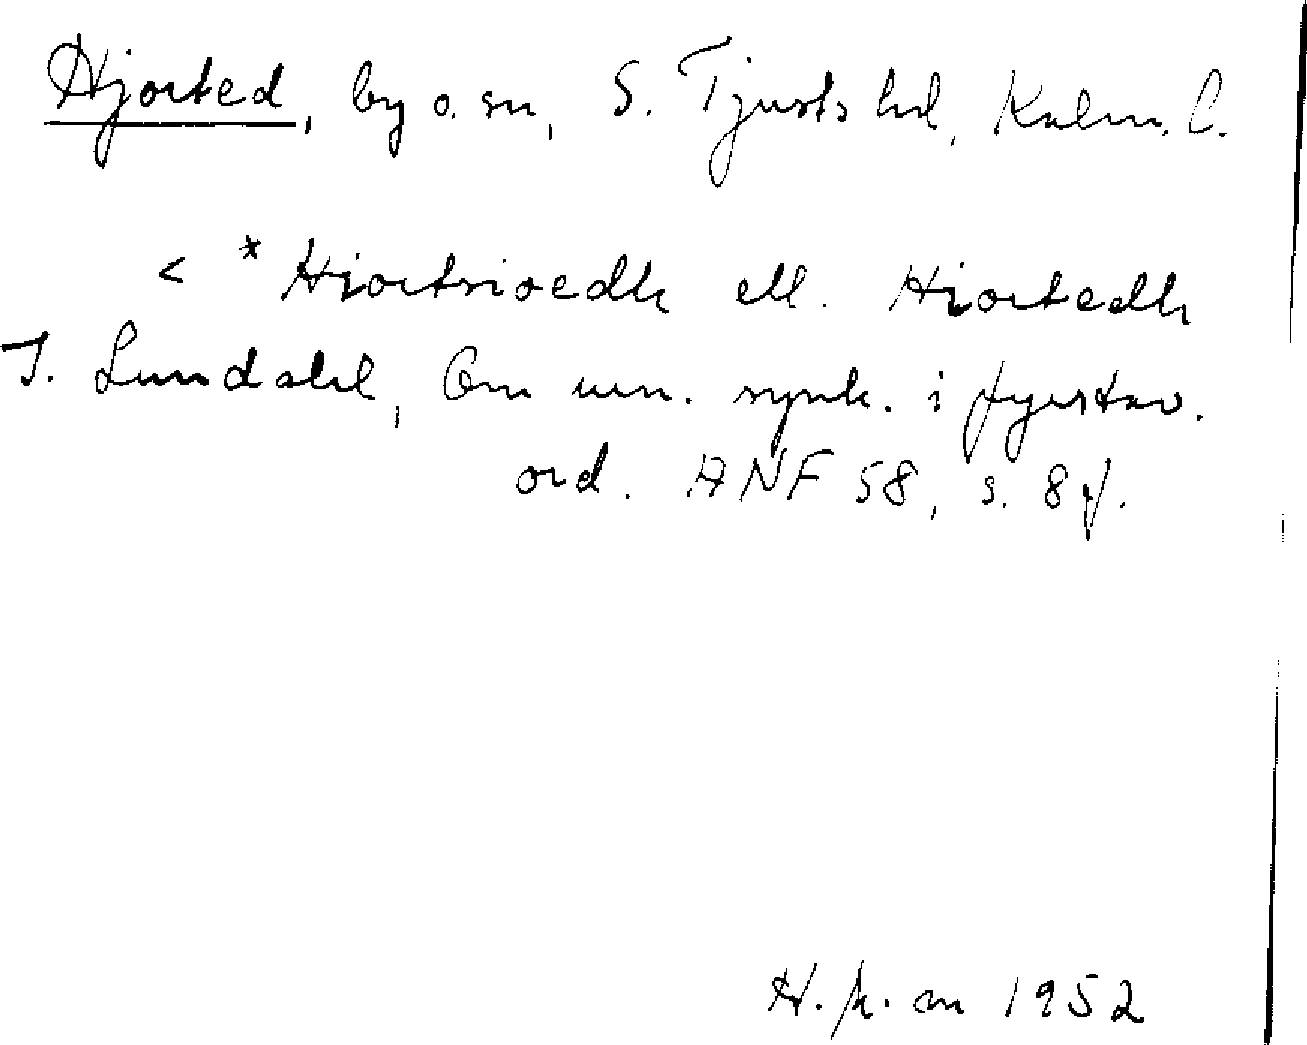 Hjorted, by o. sn, S. Tjusts hd, Kalm. l.
< * Hiortsioedh ell. Hiortedh
I. Lundahl, Om un. synk. i fyrstav.
ord. ANF 58, s. 8 f.
H. 1952